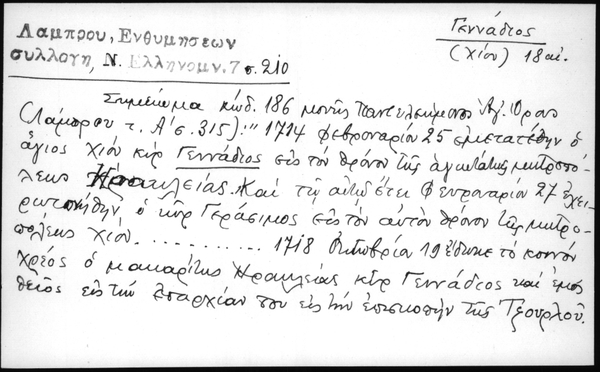 Λάμπρου, Ενθυμήσεων
συλλογή, Ν. Ελληνομν. 7 σ. 210
Γεννάδιος
(Χίου) 18 αι.
Σημείωμα κώδ. 186 μονής Παντελεήμονος Αγ. Όρους
(Λάμπρου τ. Α' σ. 315): " 1714 φεβρουαρίου 25 εμετατέθην ο
άγιος Χίου κύρ Γεννάδιος εις τον θρόνον της αγιωτάτης μητροπό-
λεως Ηρακλείας. Και τω αυτώ έτει Φευρουαρίου 27 έχει-
ροτονήθην ο κύρ Γεράσιμος εις τον αυτόν θρόνον της μητρο-
πόλεως Χίου. . . . . . . . . . . 1718 Οκτωβρίου 19 έδωκε το κοινόν
χρέος ο μακαρίτης Ηρακλείας κύρ Γεννάδιος και εμος
θείος εις την επαρχίαν του εις την επισκοπήν της Τζουρλού.